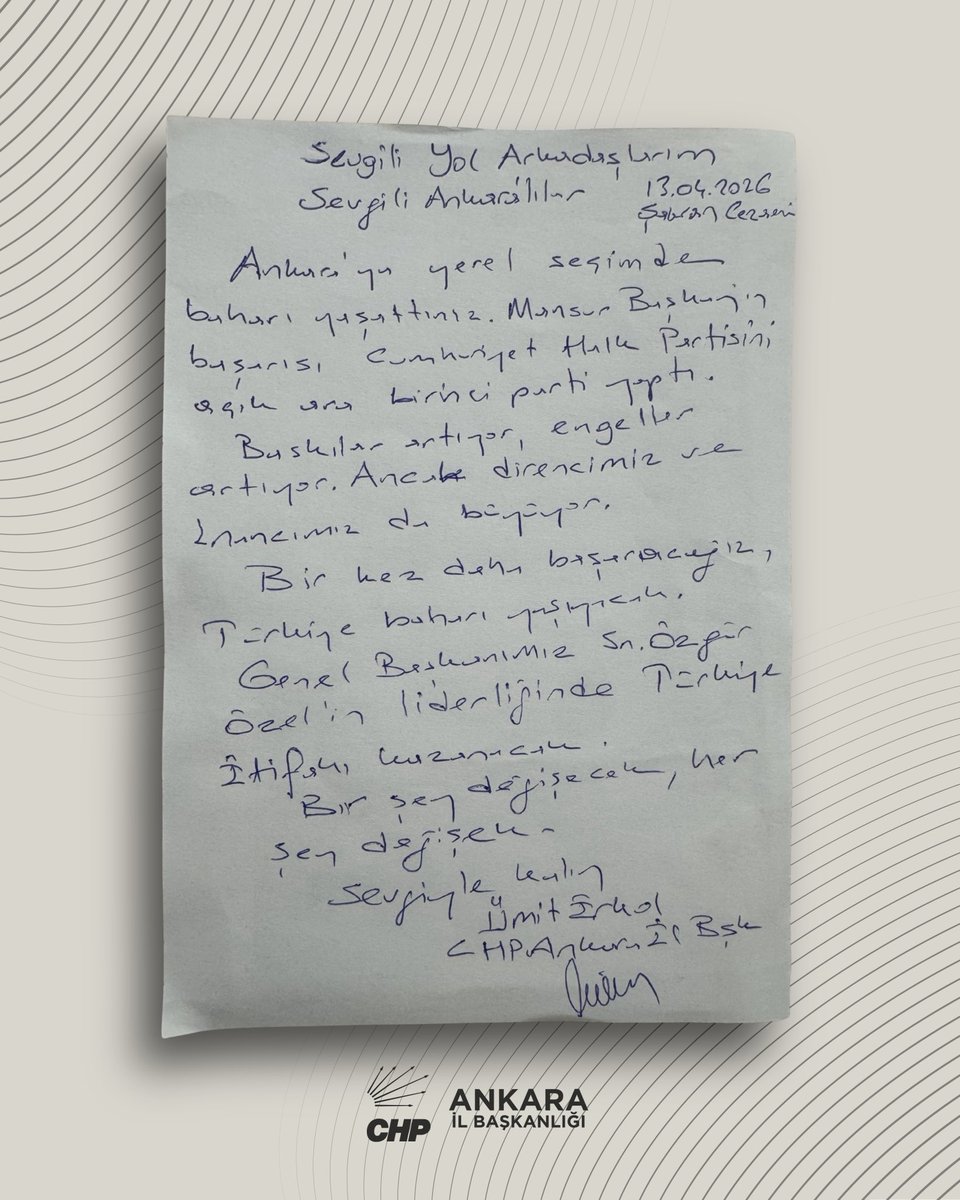 Sevgili Yol Arkadaşlarım
Sevgili Ankaralılar
13.04.2026
Şabran Cezaevi
Ankara'ya yerel seçimde
baharı yaşattınız. Mansur Başkanın
başarısı, Cumhuriyet Halk Partisini
açık ara birinci parti yaptı.
Baskılar artıyor, engeller
artıyor. Ancak direncimiz ve
İnancımız da büyüyor.
Bir kez daha başaracağız,
Türkiye baharı yaşıyacak.
Genel Başkanımız Sn. Özgür
Özel'in liderliğinde Türkiye
İtifakı kazanacak.
Bir şey değişecek, her
şey değişek.
Sevgiyle kalın
Ümit Erkol
CHP Ankara İl Bşk
CHP
ANKARA
İL BAŞKANLIĞI